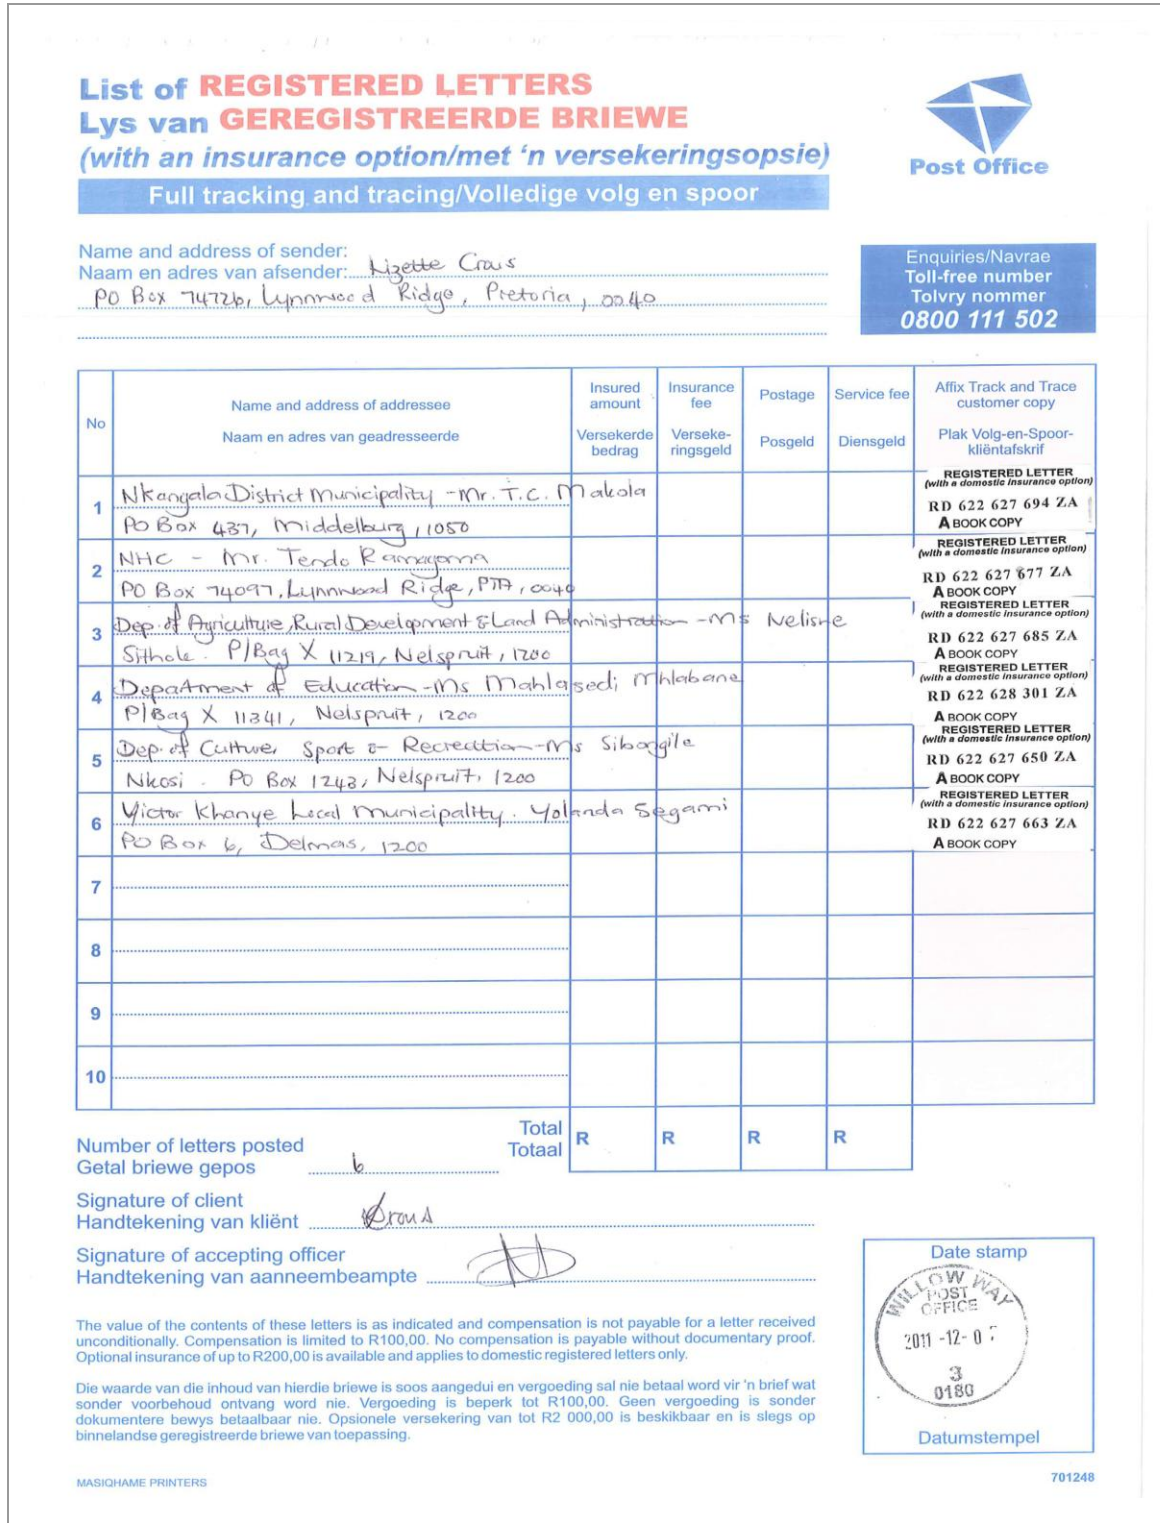 List of REGISTERED LETTERS
Lys van GEREGISTREERDE BRIEWE
(with an insurance option/met ‘n versekeringsopsie)
Full tracking and tracing/Volledige volg en spoor
Post Office
Name and address of sender:
Naam en adres van afsender: Lizette Crous
PO Box 74726, Lynnwood Ridge, Pretoria, 0040
Enquiries/Navrae
Toll-free number
Tolvry nommer
0800 111 502
No
Name and address of addressee
Naam en adres van geadresseerde
Insured amount
Versekerde bedrag
Insurance fee
Verseke-ringsgeld
Postage
Posgeld
Service fee
Diensgeld
Affix Track and Trace customer copy
Plak Volg-en-Spoor-kliëntafskrif
1
Nkangala District Municipality - Mr. T.C. Makola
PO Box 437, Middelburg, 1050
REGISTERED LETTER
(with a domestic insurance option)
RD 622 627 694 ZA
A BOOK COPY
2
NHC - Mr. Tendo Ramagoma
PO Box 74097, Lynnwood Ridge, PTA, 0040
REGISTERED LETTER
(with a domestic insurance option)
RD 622 627 677 ZA
A BOOK COPY
3
Dep. of Agriculture, Rural Development & Land Administration - Ms Nelisiwe
Sithole. P/Bag X 11219, Nelspruit, 1200
REGISTERED LETTER
(with a domestic insurance option)
RD 622 627 685 ZA
A BOOK COPY
4
Department of Education - Ms Mahlasedi Mhlabane
P/Bag X 11341, Nelspruit, 1200
REGISTERED LETTER
(with a domestic insurance option)
RD 622 628 301 ZA
A BOOK COPY
5
Dep. of Culture, Sport & Recreation - Ms Sibongile
Nkosi. PO Box 1243, Nelspruit, 1200
REGISTERED LETTER
(with a domestic insurance option)
RD 622 627 650 ZA
A BOOK COPY
6
Victor Khanye Local Municipality. Yolanda Segami
PO Box 6, Delmas, 1200
REGISTERED LETTER
(with a domestic insurance option)
RD 622 627 663 ZA
A BOOK COPY
7
8
9
10
Number of letters posted
Getal briewe gepos 6
Total
Totaal
R R R R
Signature of client
Handtekening van kliënt Crous
Signature of accepting officer
Handtekening van aanneembeampte
The value of the contents of these letters is as indicated and compensation is not payable for a letter received
unconditionally. Compensation is limited to R100,00. No compensation is payable without documentary proof.
Optional insurance of up to R200,00 is available and applies to domestic registered letters only.
Die waarde van die inhoud van hierdie briewe is soos aangedui en vergoeding sal nie betaal word vir 'n brief wat
sonder voorbehoud ontvang word nie. Vergoeding is beperk tot R100,00. Geen vergoeding is sonder
dokumentere bewys betaalbaar nie. Opsionele versekering van tot R2 000,00 is beskikbaar en is slegs op
binnelandse geregistreerde briewe van toepassing.
Date stamp
WILLOW WAY
POST
OFFICE
2011 -12- 07
3
0180
Datumstempel
MASIQHAME PRINTERS
701248